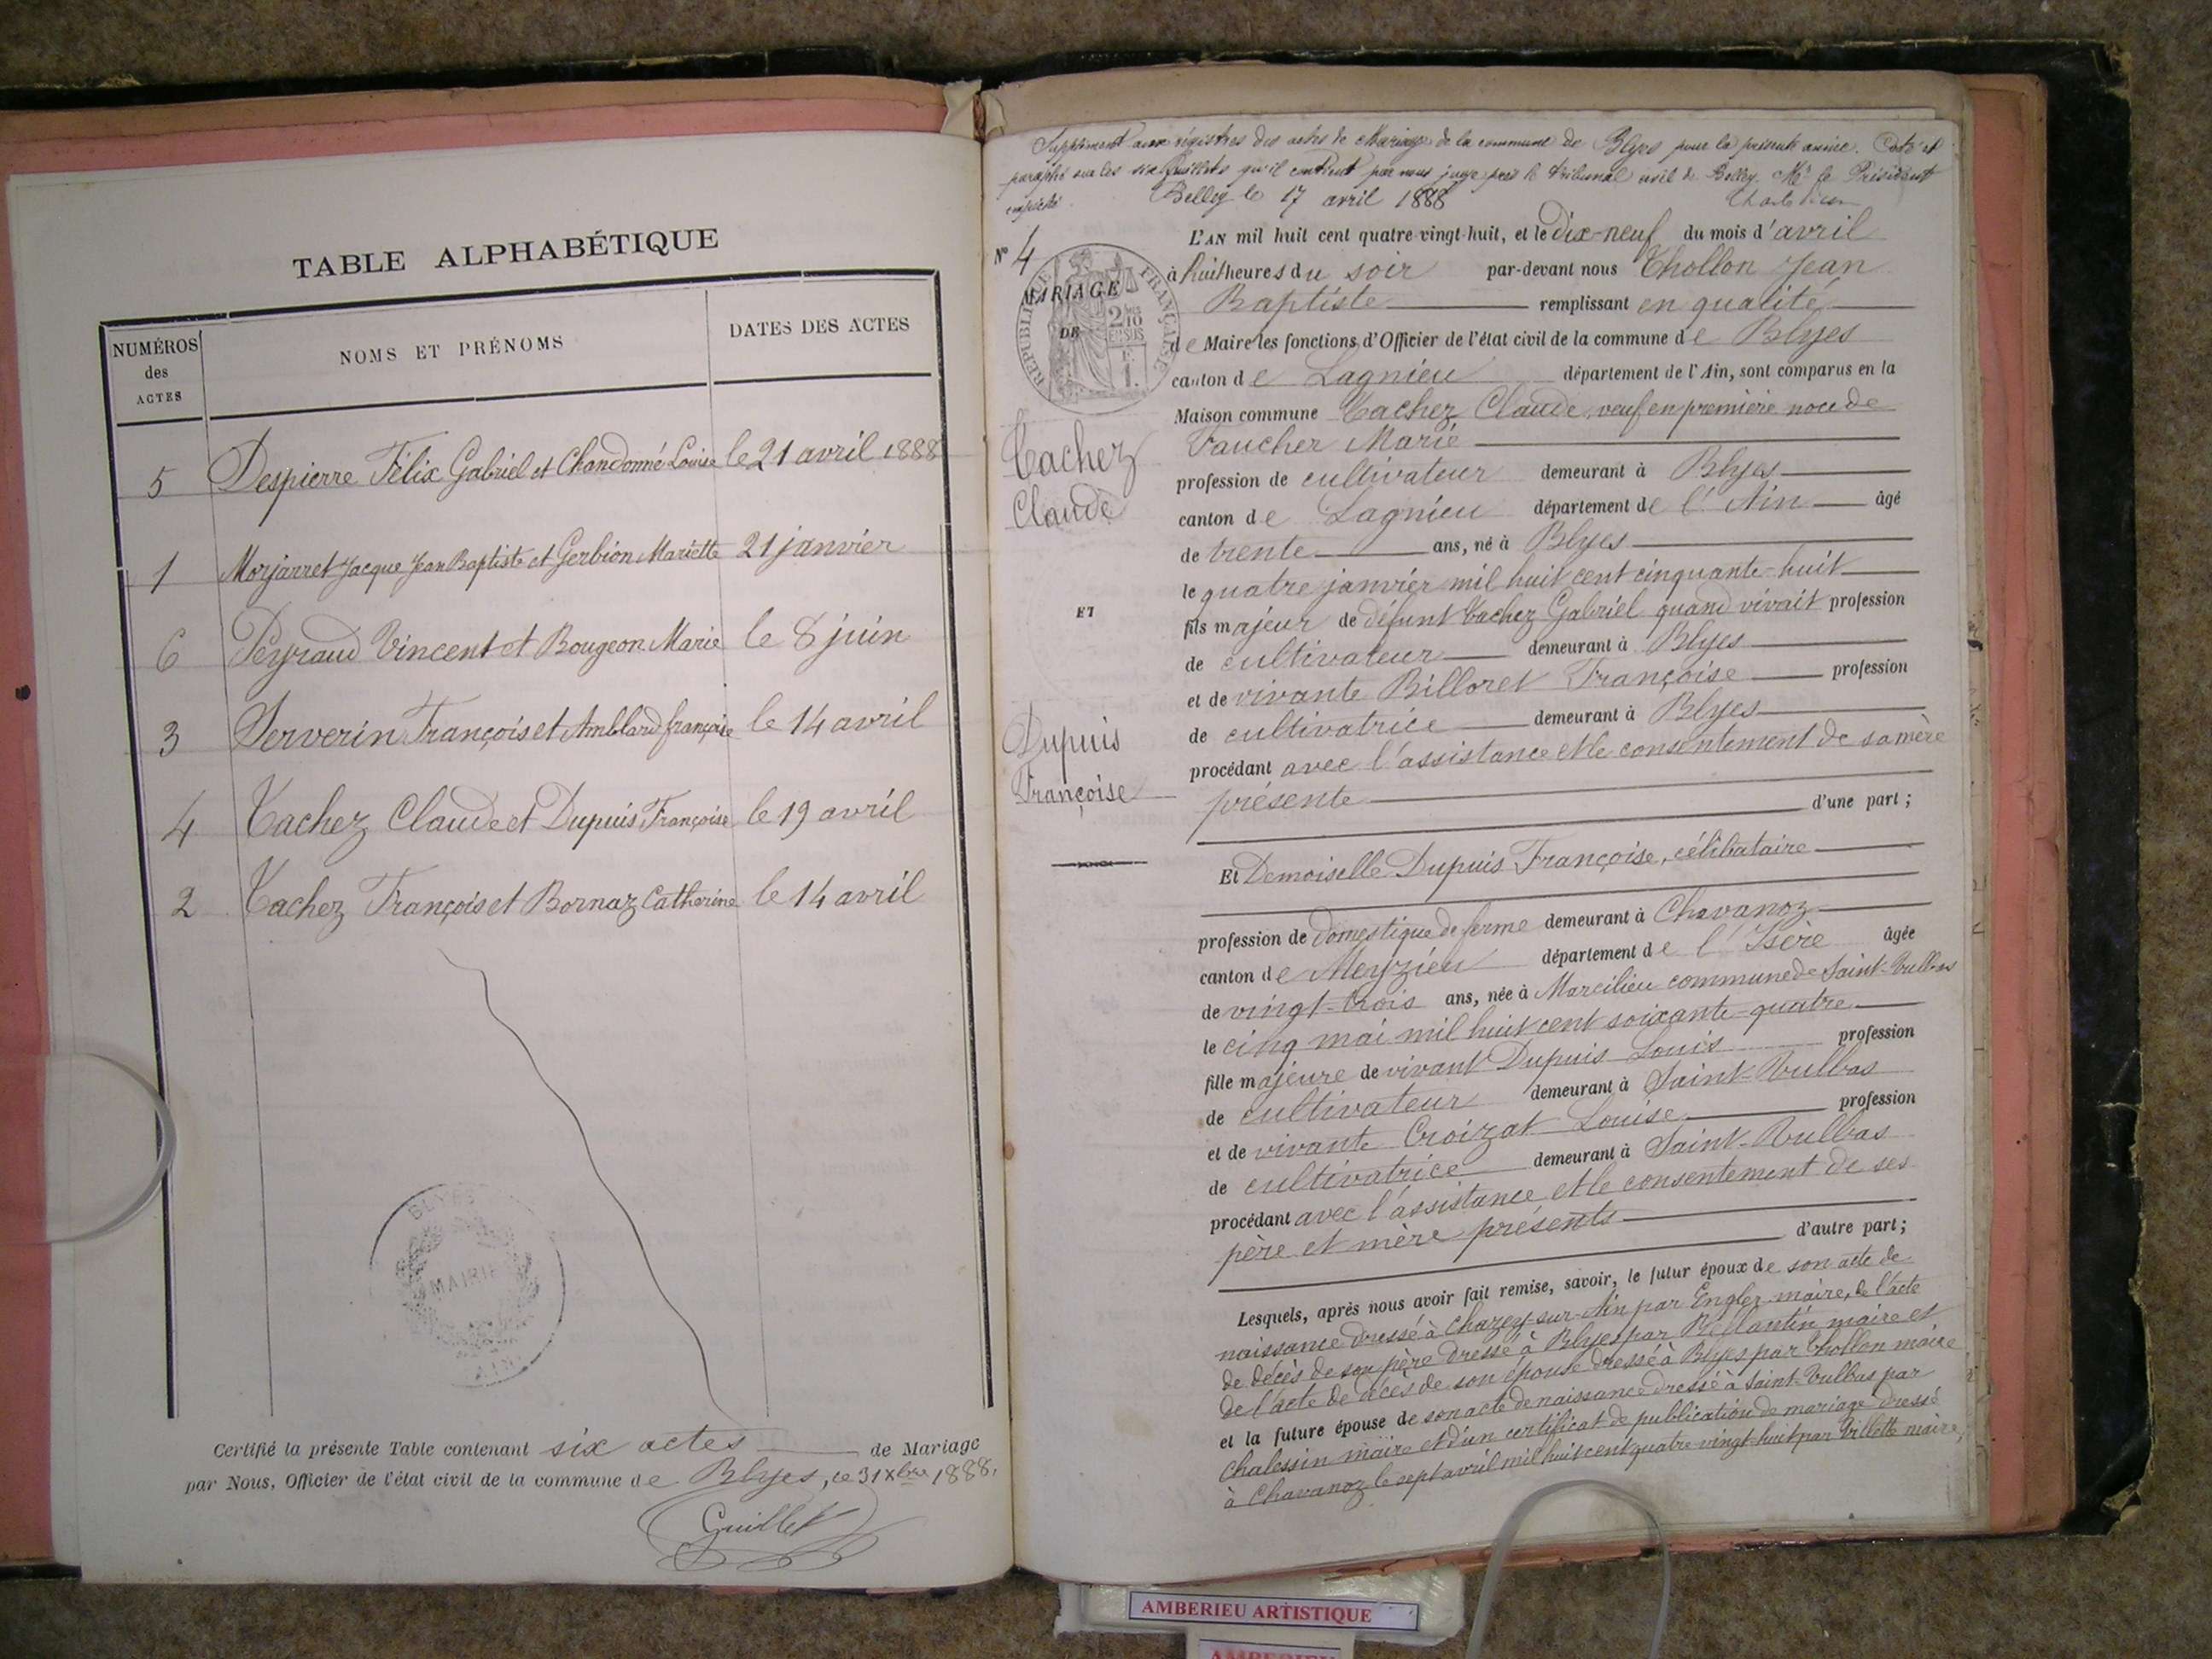 TABLE ALPHABÉTIQUE
NUMÉROS des ACTES
NOMS ET PRÉNOMS
DATES DES ACTES
5 Despierre Félix Gabriel et Chandonné Louise le 21 avril 1888
1 Morjarret Jacque Jean Baptiste et Gerbion Mariette 21 janvier
6 Peyraud Vincent et Bougeon Marie le 8 juin
3 Serverin François et Amblard françoise le 14 avril
4 Vachez Claude et Dupuis Françoise le 19 avril
2 Vachez François et Bornaz Catherine le 14 avril
BLYES
MAIRIE
AIN
Certifié la présente Table contenant six actes de Mariage
par Nous, Officier de l'état civil de la commune de Blyes, le 31 Xbre 1888.
Guillet
Supplément aux régistres des actes de Mariage de la commune de Blyes pour la présente année. Coté et
paraphé sur les six feuillets qu'il contient par nous juge près le tribunal civil de Belley, Mr le Président
empêché. Belley le 17 avril 1888
N° 4
RÉPUBLIQUE FRANÇAISE
2/10 EN SUS
MARIAGE
DE
Vachez
Claude
ET
Dupuis
Françoise
L'AN mil huit cent quatre-vingt-huit, et le dix-neuf du mois d'avril
à huit heures du soir par-devant nous Thollon Jean
Baptiste remplissant en qualité
de Maire les fonctions d'Officier de l'état civil de la commune de Blyes
canton de Lagnieu département de l'Ain, sont comparus en la
Maison commune Vachez Claude, veuf en première noce de
Vaucher Marie
profession de cultivateur demeurant à Blyes
canton de Lagnieu département de l'Ain âgé
de trente ans, né à Blyes
le quatre janvier mil huit cent cinquante-huit
fils majeur de défunt Vachez Gabriel quand vivait profession
de cultivateur demeurant à Blyes
et de vivante Billoret Françoise profession
de cultivatrice demeurant à Blyes
procédant avec l'assistance et le consentement de sa mère
présente d'une part;
Et Demoiselle Dupuis Françoise, célibataire
profession de domestique de ferme demeurant à Chavanoz
canton de Meyzieu département de l'Isère âgée
de vingt-trois ans, née à Marcilieu commune de Saint-Vulbas
le cinq mai mil huit cent soixante-quatre
fille majeure de vivant Dupuis Louis profession
de cultivateur demeurant à Saint-Vulbas
et de vivante Croizat Louise profession
de cultivatrice demeurant à Saint-Vulbas
procédant avec l'assistance et le consentement de ses
père et mère présents d'autre part;
Lesquels, après nous avoir fait remise, savoir, le futur époux de son acte de
naissance dressé à Chazey-sur-Ain par Engler maire, de l'acte
de décès de son père dressé à Blyes par maire et
de l'acte de décès de son épouse dressé à Blyes par Thollon maire
et la future épouse de son acte de naissance dressé à Saint-Vulbas par
Chalessin maire et d'un certificat de publication de mariage dressé
à Chavanoz le sept avril mil huit cent quatre-vingt-huit par Villette maire,
AMBERIEU ARTISTIQUE
AMBERIEU